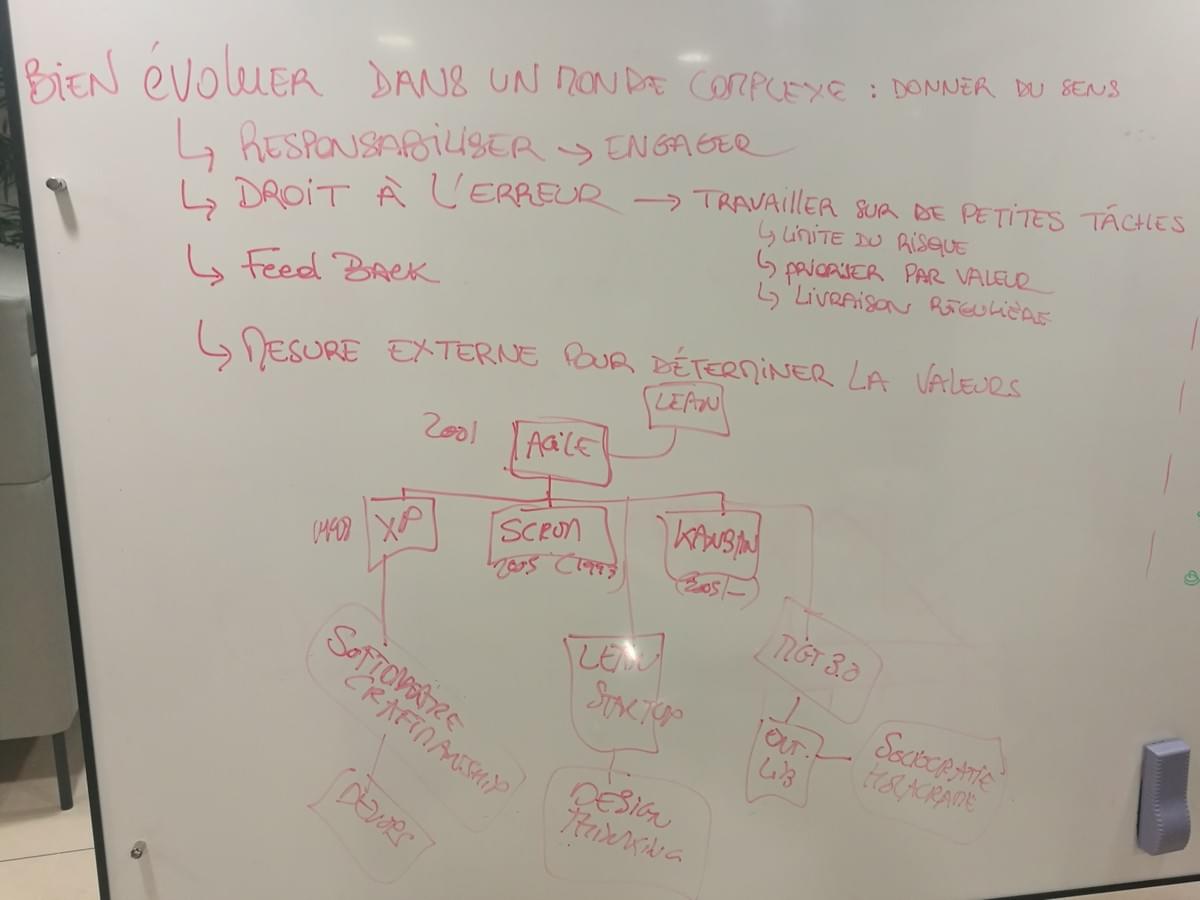 BIEN ÉVOLUER DANS UN MONDE COMPLEXE : DONNER DU SENS
↳ RESPONSABILISER → ENGAGER
↳ DROIT À L'ERREUR → TRAVAILLER SUR DE PETITES TÂCHES
↳ LIMITE DU RISQUE
↳ PRIORISER PAR VALEUR
↳ LIVRAISON RÉGULIÈRE
↳ Feed BACK
↳ MESURE EXTERNE POUR DÉTERMINER LA VALEURS
LEAN
2001 AGILE
XP SCRUM KANBAN
2005 (1993)
(2005/—)
SOFTWARE
CRAFTMANSHIP
LEAN
STARTUP
MGT 3.0
DEVOPS
DESIGN
THINKING
ENT.
LIB
SOCIOCRATIE
HOLACRATIE